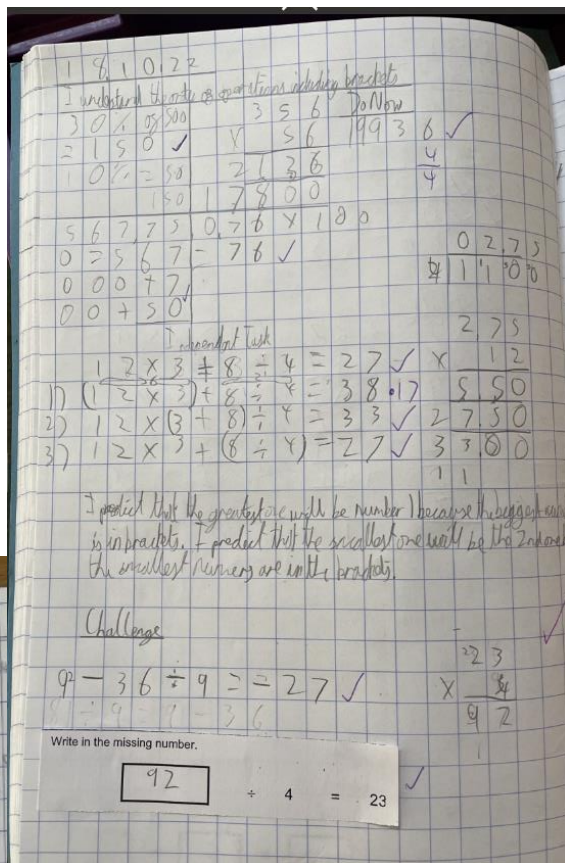 18.10.22
I understand the order of operations including brackets
30% of 500
= 150 ✓
10% = 50
150
356
x 56
2136
17800
Do Now
19936 ✓
4
4
567,75 0,76 x 100
0 = 567 = 76 ✓
000 + 7
00 + 50
0275
4 1100
Independent Task
12 x 3 + 8 ÷ 4 = 27 ✓
1) (12 x 3) + 8 ÷ 4 = 38 . 17
2) 12 x (3 + 8) ÷ 4 = 33 ✓
3) 12 x 3 + (8 ÷ 4) = 27 ✓
2,75
x 12
5 50
27 50
33 00
1 1
I predict that the greatest one will be number 1 because the biggest
is in brackets. I predict that the smallest one will be the 2nd one
the smallest numers are in the brackets.
Challenge
9² - 36 ÷ 9 = = 27 ✓
8 ÷ 9 = 9 - 36
23
x 4
92
1
Write in the missing number.
92 ÷ 4 = 23 ✓